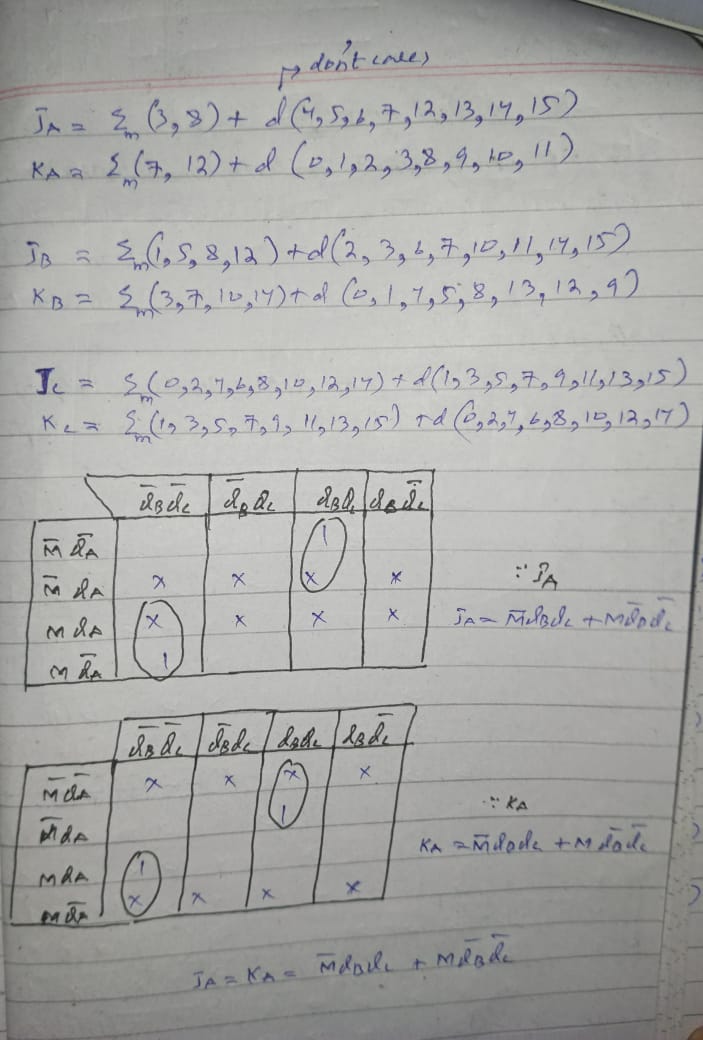 → don't cares
J_A = Σ_m (3, 8) + d(4, 5, 6, 7, 12, 13, 14, 15)
K_A = Σ_m (7, 12) + d (0, 1, 2, 3, 8, 9, 10, 11)
J_B = Σ_m (1, 5, 8, 12) + d(2, 3, 6, 7, 10, 11, 14, 15)
K_B = Σ_m (3, 7, 10, 14) + d (0, 1, 4, 5, 8, 13, 12, 9)
J_C = Σ (0, 2, 4, 6, 8, 10, 12, 14) + d(1, 3, 5, 7, 9, 11, 13, 15)
K_C = Σ_m (1, 3, 5, 7, 9, 11, 13, 15) + d (0, 2, 4, 6, 8, 10, 12, 14)
Q̄_B Q̄_C Q̄_B Q_C Q_B Q_C Q_B Q̄_C
M̄ Q̄_A 1
M̄ Q_A x x x x
M Q_A x x x x
M Q̄_A 1
∵ J_A
J_A = M̄ Q_B Q_C + M Q̄_B Q̄_C
Q̄_B Q̄_C Q̄_B Q_C Q_B Q_C Q_B Q̄_C
M̄ Q̄_A x x x x
M̄ Q_A 1
M Q_A 1
M Q̄_A x x x x
∵ K_A
K_A = M̄ Q_B Q_C + M Q̄_B Q̄_C
J_A = K_A = M̄ Q_B Q_C + M Q̄_B Q̄_C